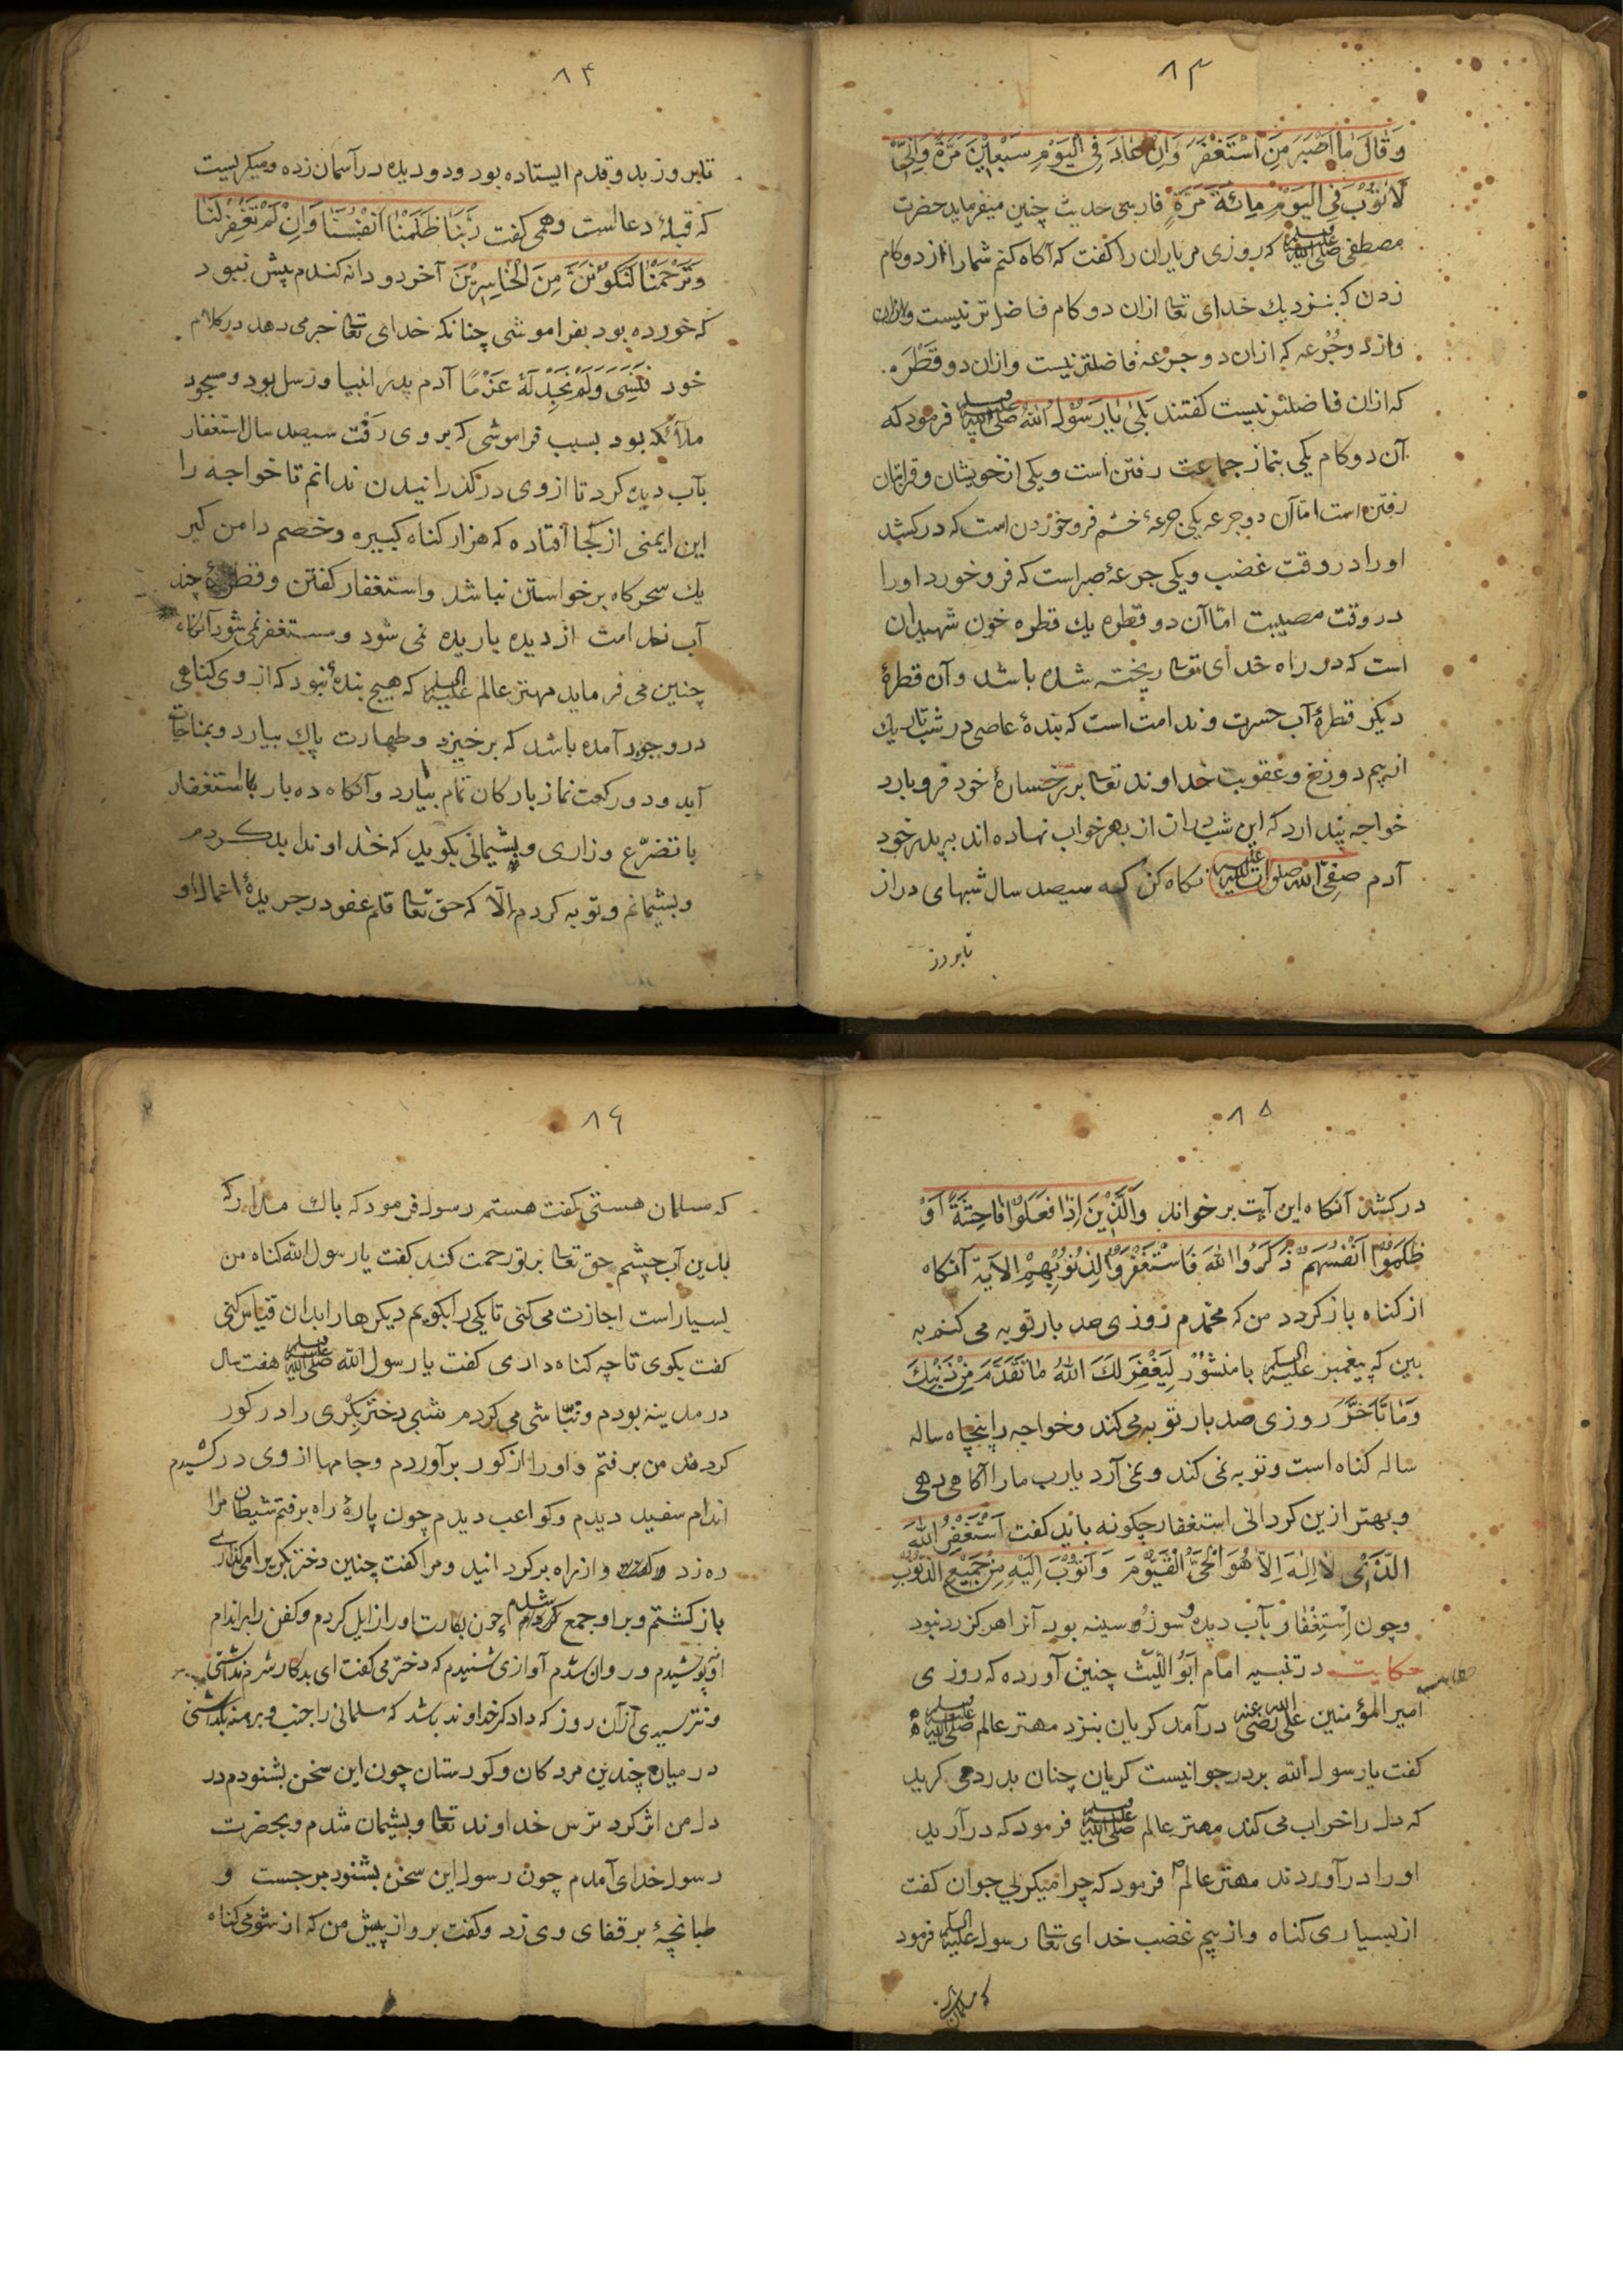 ٨٣
وَقَالَ مَا اَصَرَّ مَنِ اسْتَغْفَرَ وَاِنْ عَادَ فِي الْيَوْمِ سَبْعِيْنَ مَرَّةً وَاِنِّيْ
لَاَتُوْبُ فِي الْيَوْمِ مِائَةَ مَرَّةٍ فارسی حدیث چنین میفرماید حضرت
مصطفی صلى الله عليه وسلم که روزی مر یاران را کفت که آکاه کنم شما را از دو کام
زدن که بنزدیك خدای تعا ازان دو کام فاضل تر نیست
واز دو جُرعه که ازان دو جرعه فاضلتر نیست وازان دو قَطْرَه
که ازان فاضلتر نیست کفتند بَلٰی یٰا رَسُوْلَ اللهِ صلى الله عليه وسلم فرمود که
آن دو کام یکی بنماز جماعت رفتن است ویکی از خویشان وقرابتان
رفتن است امّا آن دو جرعه یکی جرعهٔ خشم فرو خوردن است که درکشد
اورا در وقت غضب ویکی جرعهٔ صبر است که فرو خورد اورا
در وقت مصیبت امّا آن دو قطره یك قطره خون شهیدان
است که در راه خدای تعا ریخته شده باشد وآن قطرهٔ
دیکر قطرهٔ آب حسرت وندامت است که بندهٔ عاصی در شب تاریك
از بیم دوزخ وعقوبت خداوند تعا بر رخسارهٔ خود فرو بارد
خواجه پندارد که این شب دران از بهر خواب نهاده اند به پدر خود
آدم صفی الله صلوات الله علیه نکاه کن که سیصد سال شبهای دراز
تا بروز
٨٤
تا بروز بدو قدم ایستاده بود ودو دیده در آسمان زده ومیکریست
که قبلهٔ دعاست وهمی کفت رَبَّنَا ظَلَمْنَا اَنْفُسَنَا وَاِنْ لَمْ تَغْفِرْ لَنَا
وَتَرْحَمْنَا لَنَكُوْنَنَّ مِنَ الْخَاسِرِيْنَ آخر دو دانه کندم بیش نبود
که خورده بود بفراموشی چنانکه خدای تعا خبر می دهد در کلام
خود فَنَسِیَ وَلَمْ نَجِدْ لَهُ عَزْمًا آدم پدر انبیا ورسل بود ومسجود
ملائکه بود بسبب فراموشی که بر وی رَفْت سیصد سال استغفار
بآب دیده کرد تا از وی در کذرانیدن ندانم تا خواجه را
این ایمنی از کجا افتاده که هزار کناه کبیره وخصم دامن کیر
یك سحرکاه برخواستن نباشد واستغفار کفتن وقطرهٔ چند
آب ندامت از دیده باریده نمی شود ومستغفر نمی شود آنکاه
چنین می فرماید مهتر عالم علیه السلام که هیچ بندهٔ نبود که از وی کناهی
در وجود آمده باشد که برخیزد وطهارت پاك بیارد وبمناجات
آید ودو رکعت نماز بارکان تمام بیارد وآنکاه ده بار با استغفار
با تضرّع وزاری وپشیمانی بکوید که خداوندا بد کردم
وپشیمانم وتوبه کردم اِلّا که حق تعا قلم عفو در جریدهٔ اعمال او
٨٥
درکشد آنکاه این آیت برخواند وَالَّذِيْنَ اِذَا فَعَلُوْا فَاحِشَةً اَوْ
ظَلَمُوْا اَنْفُسَهُمْ ذَكَرُوا اللهَ فَاسْتَغْفَرُوْا لِذُنُوْبِهِمْ الآيَة آنکاه
از کناه باز کردد من که محمّدم روزی صد بار توبه می کنم به
بین که پیغمبر علیه السلام با منشُوْرِ لِيَغْفِرَ لَكَ اللهُ مَا تَقَدَّمَ مِنْ ذَنْبِكَ
وَمَا تَأَخَّرَ روزی صد بار توبه می کند وخواجه را پنجاه ساله
ساله کناه است وتوبه نمی کند ونمی آرد یارب مارا آکاهی دهی
وبهتر ازین کردانی استغفار چکونه باید کفت اَسْتَغْفِرُ اللهَ
الَّذِيْ لَا اِلٰهَ اِلَّا هُوَ الْحَيُّ الْقَيُّوْمُ وَاَتُوْبُ اِلَيْهِ مِنْ جَمِيْعِ الذُّنُوْبِ
وچون اِسْتِغْفَار بآب دیده وسوز سینه بود آنرا هرکز رد نبود
حکایت در تنبیه امام اَبُوْ اللَّيْث چنین آورده که روزی
امیر المؤمنین علی رضی الله عنه در آمد کریان بنزد مهتر عالم صلى الله عليه وسلم
کفت یا رسول الله بر در جوانیست کریان چنان بدرد می کرید
که دل را خراب می کند مهتر عالم صلى الله عليه وسلم فرمود که در آرید
اورا در آوردند مهتر عالم فرمود که چرا میکریی جوان کفت
از بسیاری کناه واز بیم غضب خدای تعا رسول علیه السلام فرمود
که مسلمان
٨٦
که مسلمان هستی کفت هستم رسول فرمود که باك مدار که
بدین آب چشم حق تعا بر تو رحمت کند کفت یا رسول الله کناه من
بسیار است اجازت می کنی تا یکی را بکویم دیکرهارا بدان قیاس کنی
کفت بکوی تا چه کناه داری کفت یا رسول الله صلى الله عليه وسلم هفت سال
در مدینه بودم ونبّاشی می کردم شبی دختر بِکْری را در کور
کردند من برفتم واورا از کور برآوردم وجامها از وی درکشیدم
اندام سفید دیدم وکواعب دیدم چون پارهٔ راه برفتم شیطان مرا
ره زد واز راه برکردانید ومرا کفت چنین دختر بکر را می کذاری
باز کشتم وبر او جمع شدم چون بکارت اورا زایل کردم وکفن را بر اندام
او پوشیدم وروان شدم آوازی شنیدم که دختر می کفت ای بدکار شرم نداشتی
ونترسیدی از آن روز که دادکر خداوند باشد که مسلمانی را جنب وبرهنه بکذاشتی
در میان چندین مردکان وکورستان چون این سخن بشنودم در
دل من اثر کرد ترس خداوند تعا وپشیمان شدم وبحضرت
رسول خدای آمدم چون رسول این سخن بشنود برجست و
طبانچهٔ بر قفای وی زد وکفت برو از پیش من که از شومی کناه